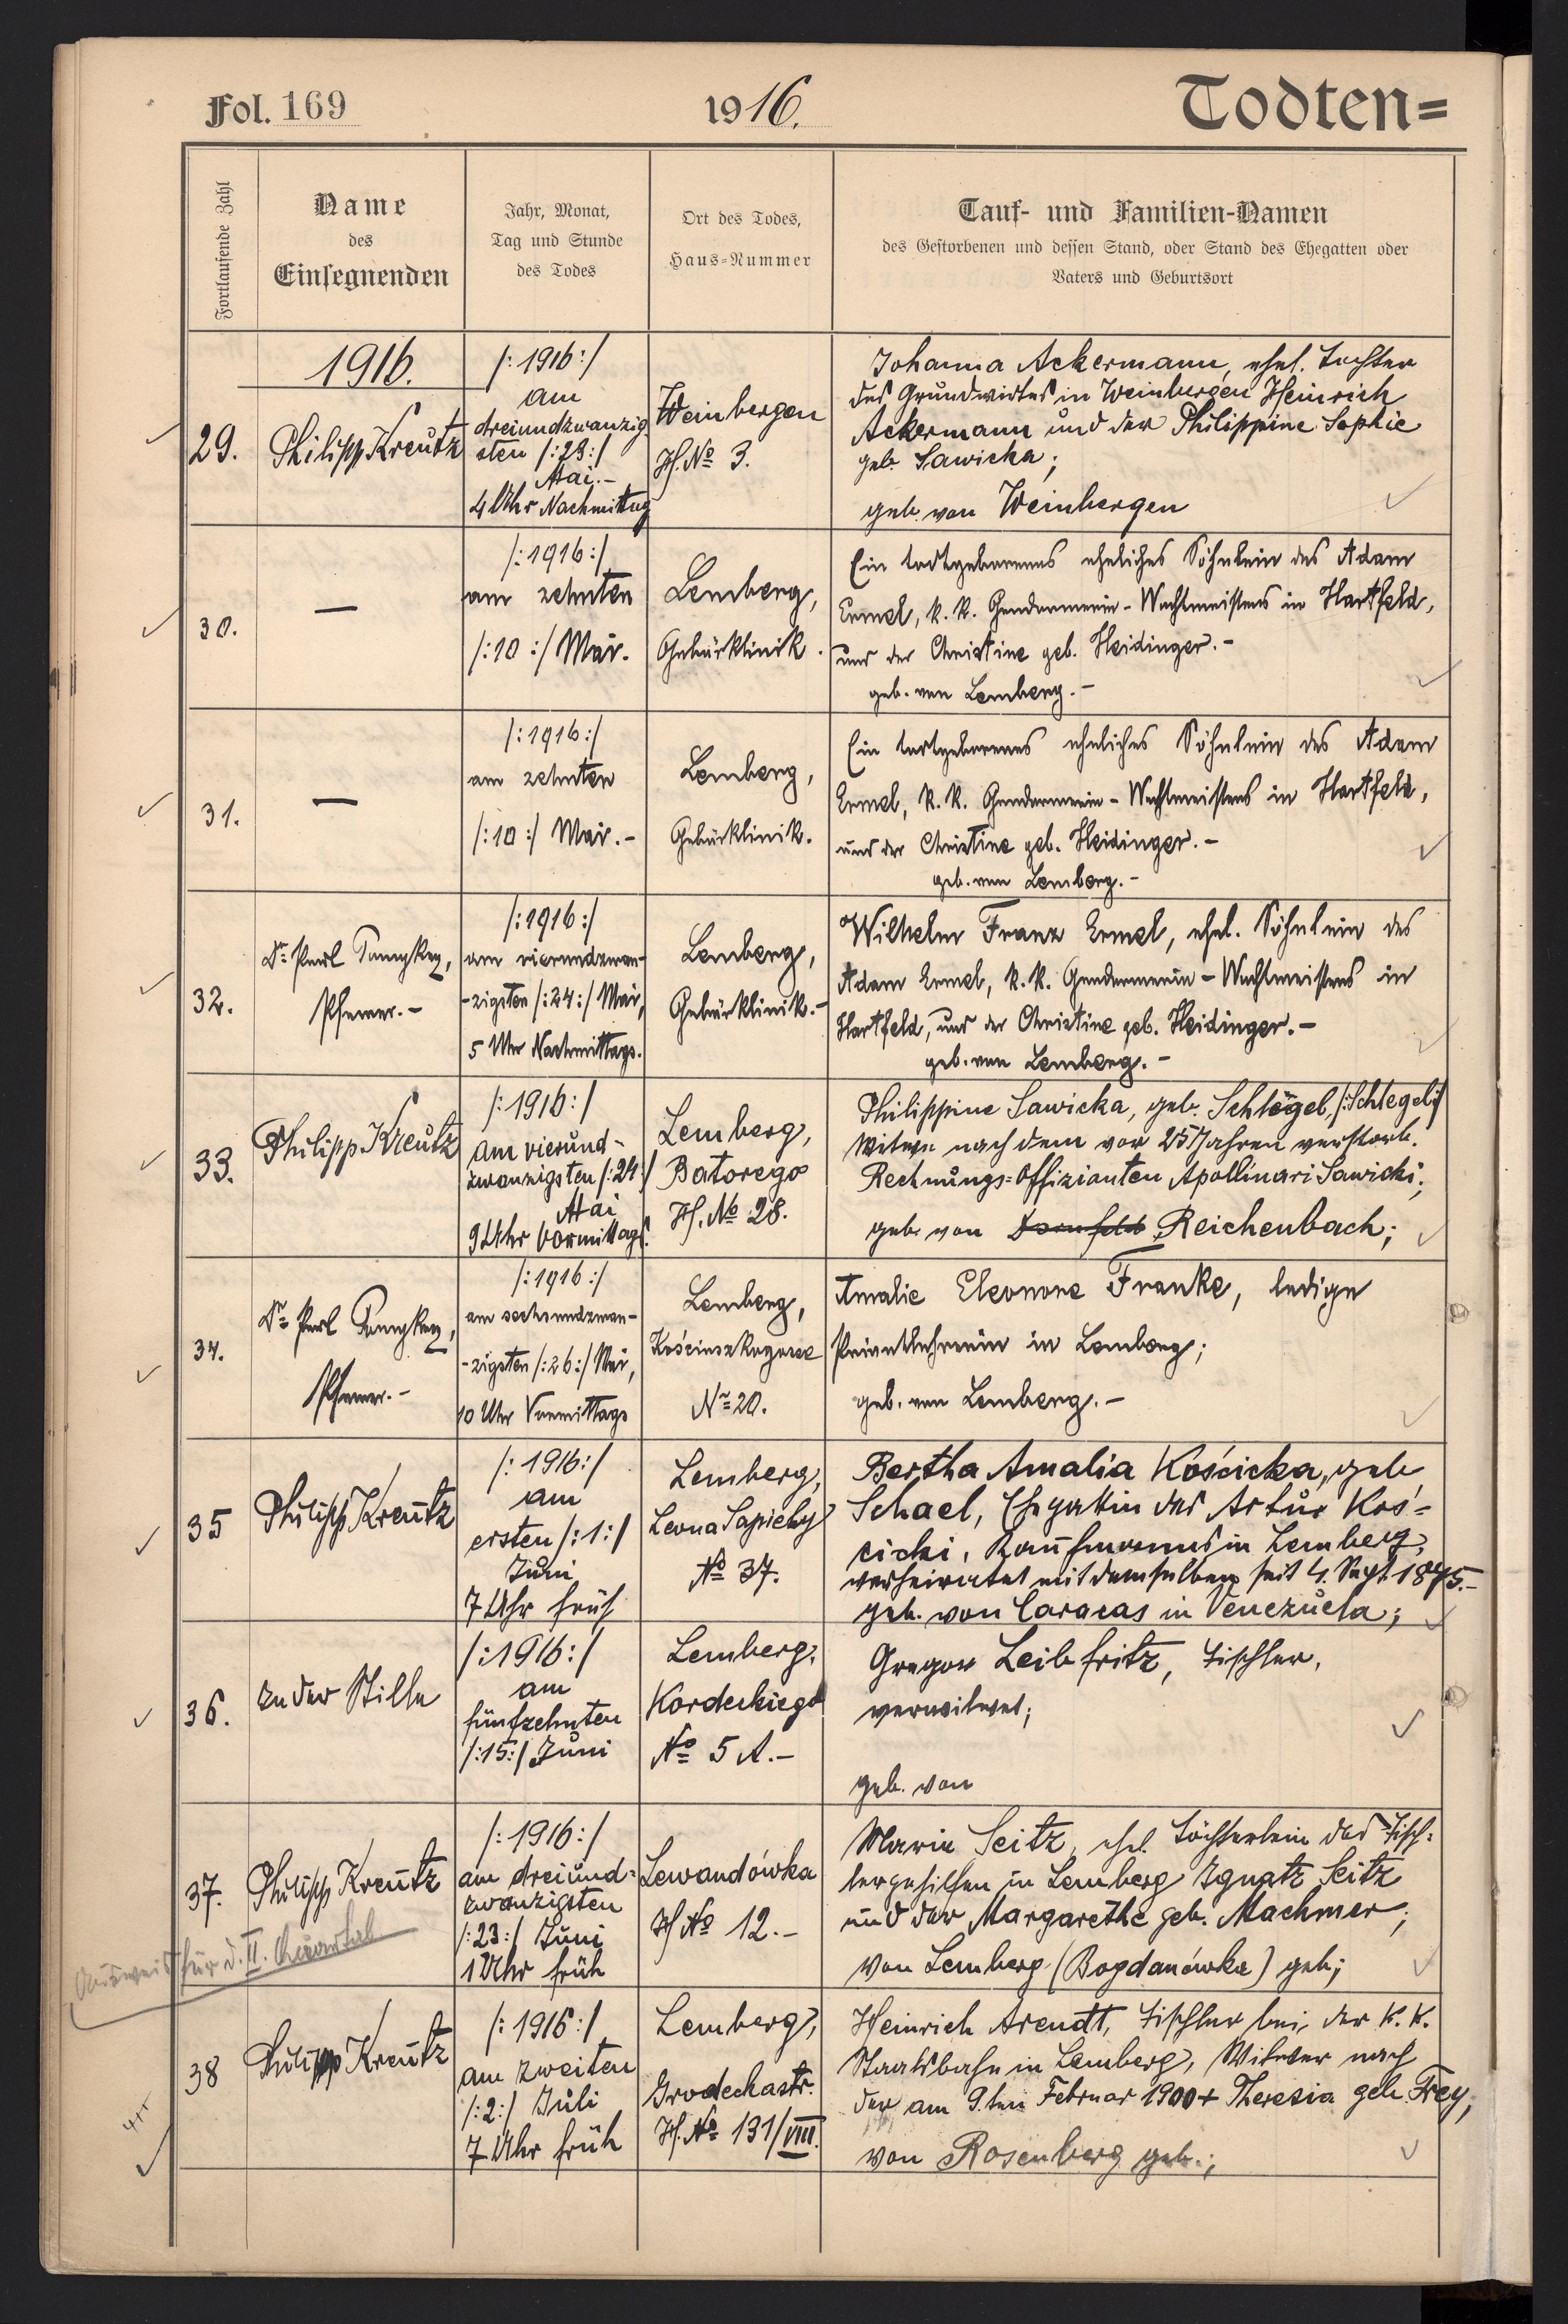 Fol. 169
1916.
Todten=
Fortlaufende Zahl
Name
des
Einsegnenden
Jahr, Monat,
Tag und Stunde
des Todes
Ort des Todes,
Haus-Nummer
Tauf- und Familien-Namen
des Gestorbenen und dessen Stand, oder Stand des Ehegatten oder
Vaters und Geburtsort
1916.
29.
Philipp Kreutz
/:1916:/
am
dreiundzwanzig
sten /:23:/
Mai.-
4 Uhr Nachmittag
Weinbergen
H. No 3.
Johanna Ackermann, ehel. Tochter
des Grundwirtes in Weinbergen Heinrich
Ackermann und der Philippine Sophie
geb. Sawicka;
geb. von Weinbergen
30.
—
/:1916:/
am zehnten
/:10:/ Mai.
Lemberg,
Gebärklinik.
Ein todtgeborenes eheliches Söhnlein des Adam
Ermel, k. k. Gendarmerie-Wachtmeisters in Hartfeld,
und der Christine geb. Heidinger.-
geb. von Lemberg.-
31.
—
/:1916:/
am zehnten
/:10:/ Mai.-
Lemberg,
Gebärklinik.
Ein todtgeborenes eheliches Söhnlein des Adam
Ermel, k. k. Gendarmerie-Wachtmeisters in Hartfeld,
und der Christine geb. Heidinger.-
geb. von Lemberg.-
32.
Dr. Paul
Pfarrer.-
/:1916:/
am vierundzwan-
-zigsten /:24:/ Mai,
5 Uhr Nachmittags.
Lemberg,
Gebärklinik.-
Wilhelm Franz Ermel, ehel. Söhnlein des
Adam Ermel, k. k. Gendarmerie-Wachtmeisters in
Hartfeld, und der Christine geb. Heidinger.-
geb. von Lemberg.-
33.
Philipp Kreutz
/:1916:/
am vierund-
zwanzigsten /:24:/
Mai
9 Uhr Vormittags.
Lemberg,
Batorego
H. No 28.
Philippine Sawicka, geb. Schlögel, /:Schlegel:/
Witwe nach dem vor 25 Jahren verstorb.
Rechnungs-Offizianten Apollinari Sawicki;
geb. von Dornfeld Reichenbach;
34.
Dr. Paul
Pfarrer.-
/:1916:/
am sechsundzwan-
-zigsten /:26:/ Mai,
10 Uhr Vormittags
Lemberg,
Kościuszkogasse
No 20.
Amalie Eleonore Franke, ledige
Privatlehrerin in Lemberg;
geb. von Lemberg.-
35
Philipp Kreutz
/:1916:/
am
ersten /:1:/
Juni
7 Uhr früh
Lemberg,
Leona Sapiehy
No 37.
Bertha Amalia Kościcka, geb
Schael, Ehegattin des Artur Koś-
cicki, Kaufmanns in Lemberg,
verheiratet mit demselben seit 4. Sept. 1875.-
geb. von Caracas in Venezuela;
36.
In der Stille
/:1916:/
am
fünfzehnten
/:15:/ Juni
Lemberg,
Kordeckiego
No 5 A.-
Gregor Leibfritz, Tischler,
verwitwet;
geb. von
37.
Philipp Kreutz
/:1916:/
am dreiund-
zwanzigsten
/:23:/ Juni
1 Uhr früh
Lewandówka
H No 12.-
Maria Seitz, ehel. Töchterlein des Tisch-
lergehilfen in Lemberg Ignatz Seitz
und der Margarethe geb. Machmer;
von Lemberg (Bogdanówka) geb;
Ausweis für d. II. Quartal
38
Philipp Kreutz
/:1916:/
am zweiten
/:2:/ Juli
7 Uhr früh
Lemberg,
Grodeckastr.
H. No 131/VIII.
Heinrich Arendt, Tischler bei der K. K.
Staatsbahn in Lemberg, Witwer nach
der am 9.ten Februar 1900 + Theresia geb. Frey,
von Rosenberg geb.;